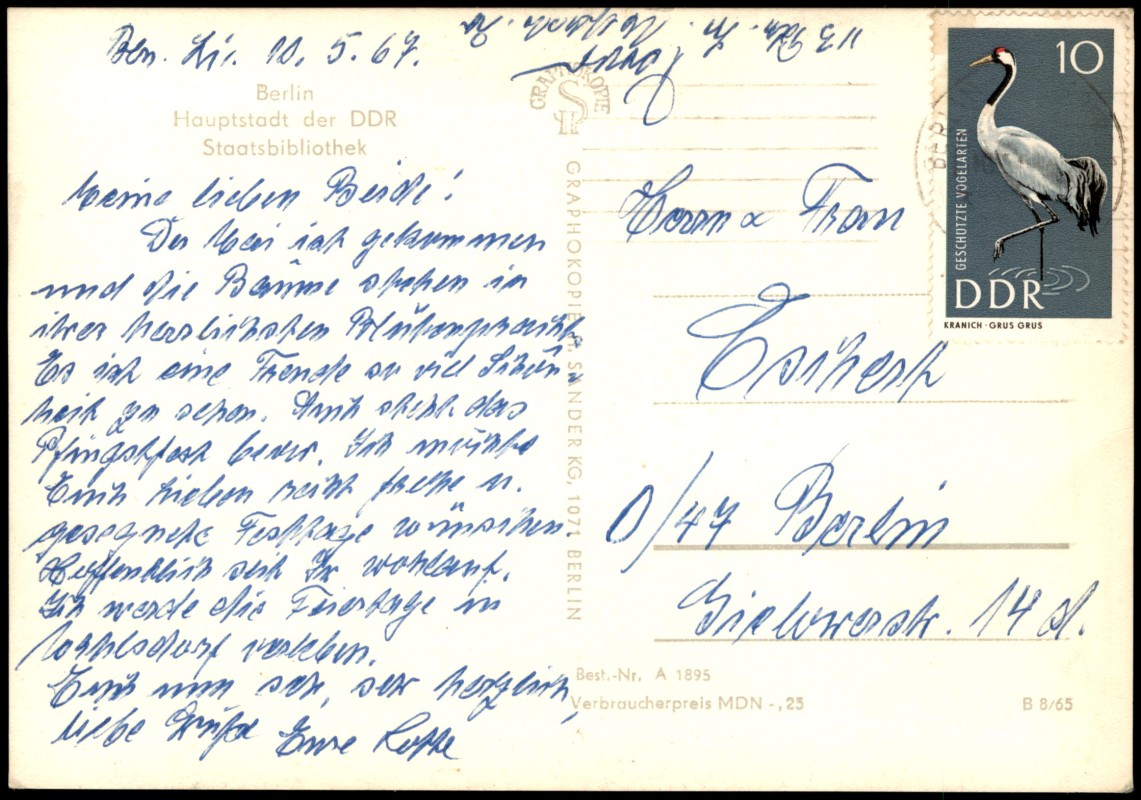 Bln. Li. 10. 5. 67.
Berlin
Hauptstadt der DDR
Staatsbibliothek
Meine lieben Beide!
Der Mai ist gekommen
und die Bäume stehen in
ihrer herrlichsten Blütenpracht.
Es ist eine Freude so viel Schön-
heit zu sehen. Auch steht das
Pfingstfest bevor. Ich möchte
Euch Lieben recht frohe u.
gesegnete Festtage wünschen.
Hoffentlich seit Ihr wohlauf.
Ich werde die Feiertage in
verleben.
Euch nun sehr, sehr herzlich
liebe Grüße Eure Lotte
GRAPHOKOPIE
GRAPHOKOPIE H. SANDER KG, 1071 BERLIN
Herrn & Frau
0/47 Berlin
14 d.
Best.-Nr. A 1895
Verbraucherpreis MDN -,25
B 8/65
10
GESCHÜTZTE VOGELARTEN
DDR
KRANICH · GRUS GRUS
BERL